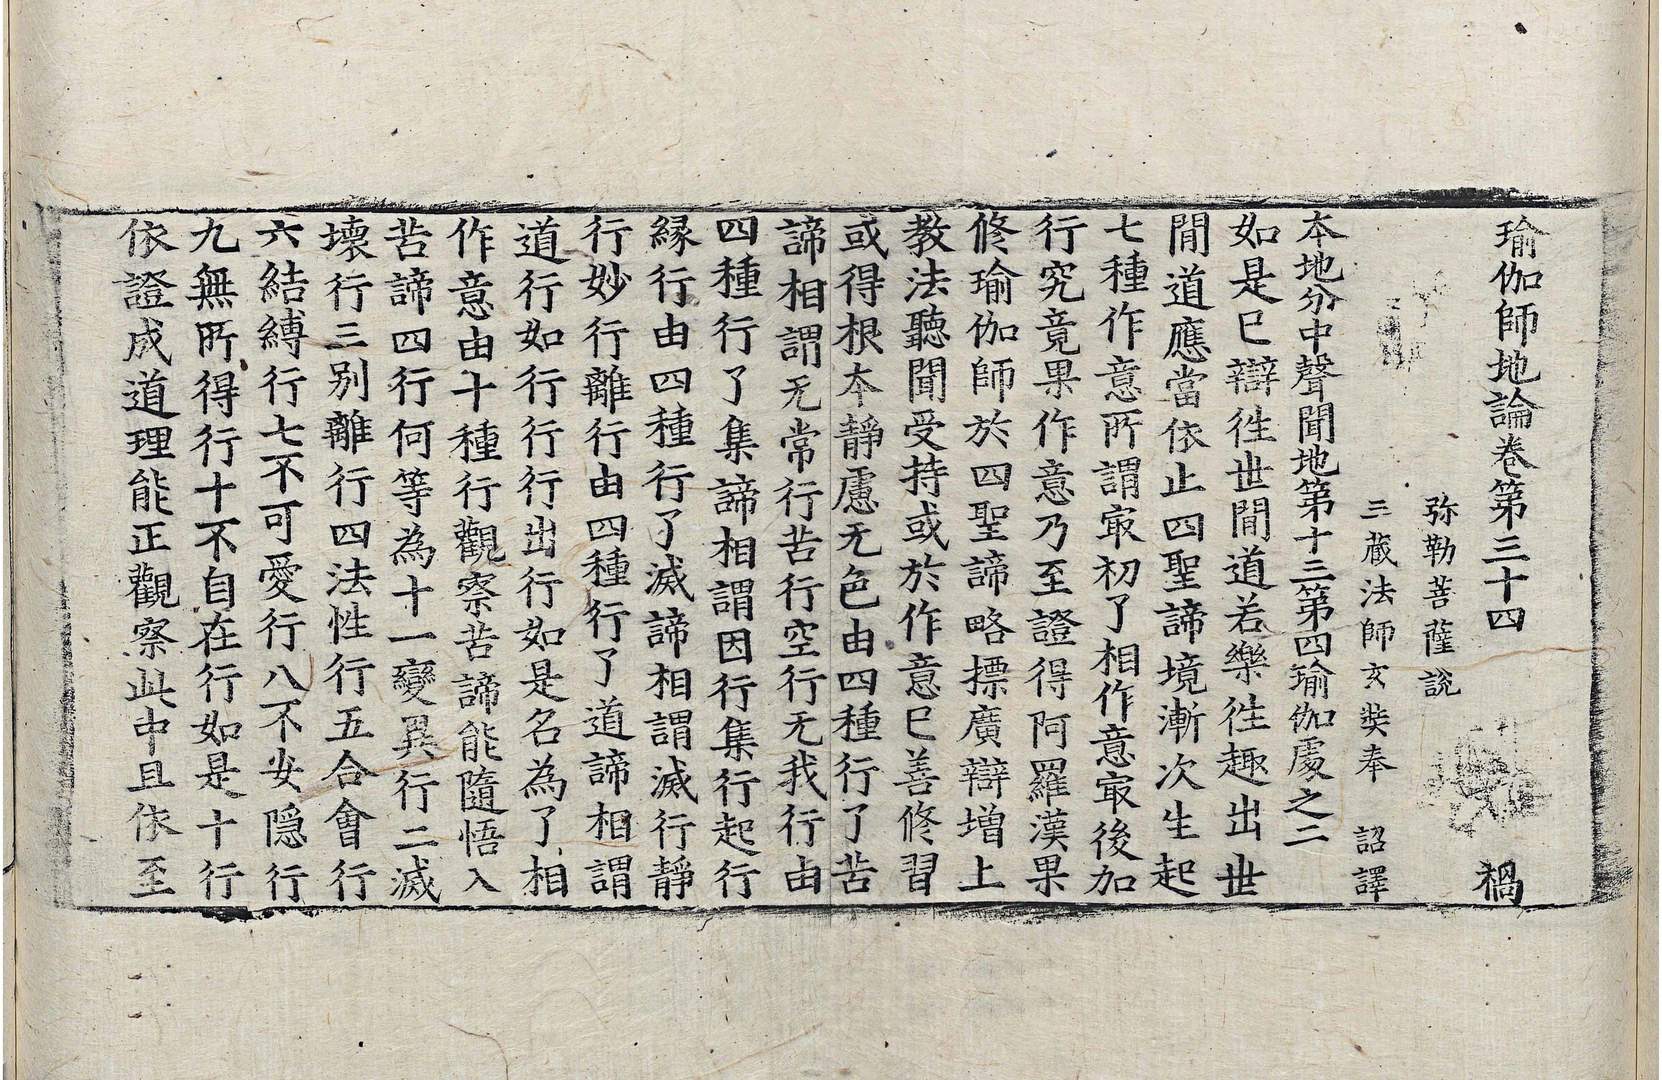 瑜伽師地論卷第三十四　禍
弥勒菩薩說
三藏法師玄奘奉　詔譯
本地分中聲聞地第十三第四瑜伽處之二
如是已辯徃世閒道若樂徃趣出世
閒道應當依止四聖諦境漸次生起
七種作意所謂㝡初了相作意㝡後加
行究竟果作意乃至證得阿羅漢果
修瑜伽師於四聖諦略摽廣辯增上
教法聽聞受持或於作意已善修習
或得根本靜慮无色由四種行了苦
諦相謂无常行苦行空行无我行由
四種行了集諦相謂因行集行起行
緣行由四種行了滅諦相謂滅行靜
行妙行離行由四種行了道諦相謂
道行如行行行出行如是名為了相
作意由十種行觀察苦諦能隨悟入
苦諦四行何等為十一變異行二滅
壞行三別離行四法性行五合會行
六結縛行七不可愛行八不安隱行
九無所得行十不自在行如是十行
依證成道理能正觀察此中且依至